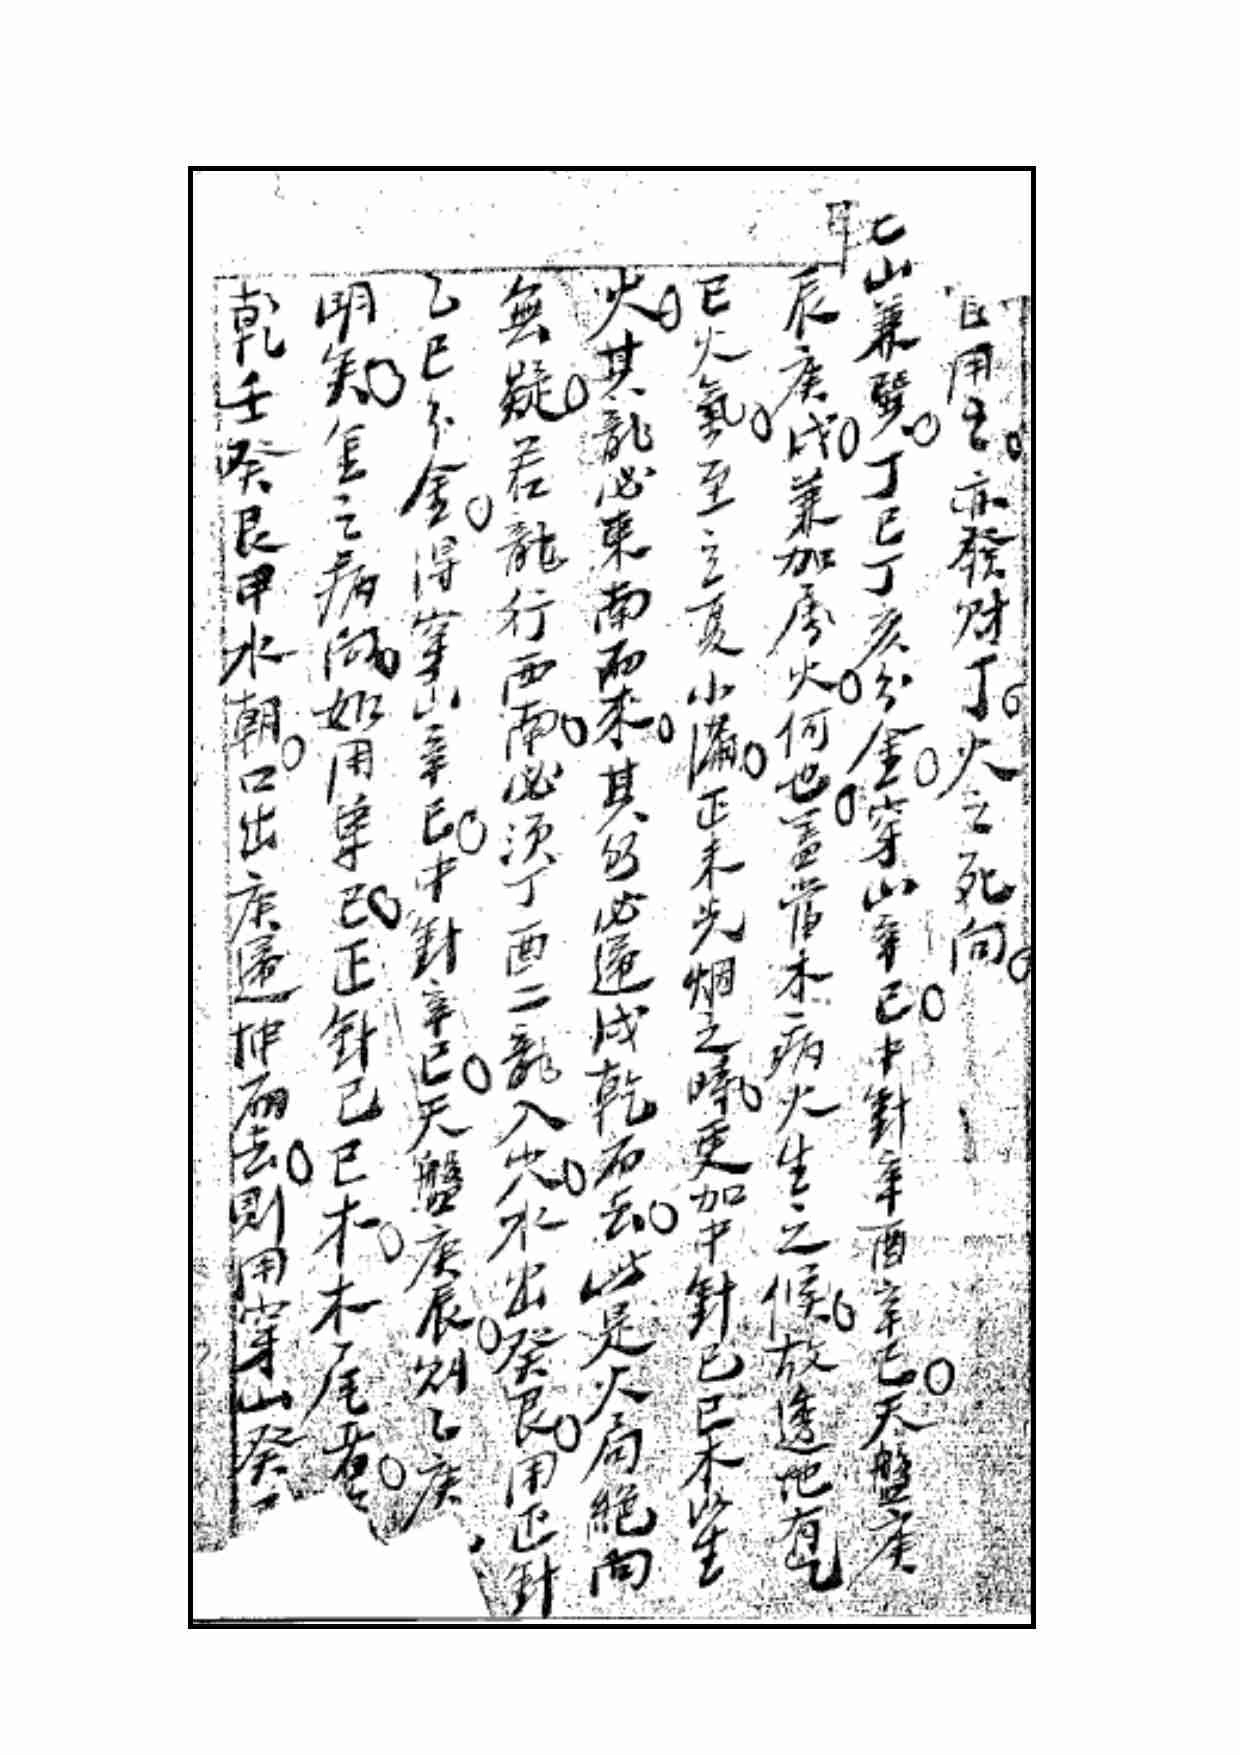 用之亦發財丁火之死向
山兼巽丁巳丁亥分金穿山辛巳中針辛酉辛巳天盤庚
辰庚戌兼加屬火何也蓋當木病火生之候故透地有乙
巳火氣至立夏小滿正未光烟之時更加中針己巳木以生
火其龍必東南而來其必逼戌乾而去此是火局絕向
無疑若龍行西南必須丁酉二龍入穴水出癸艮用正針
乙巳分金得穿山辛巳中針辛巳天盤庚辰則乙庚
明矣金之病如用辛巳正針己巳木木尾者
乾壬癸艮甲水朝口出庚逼坤而去則用穿山癸